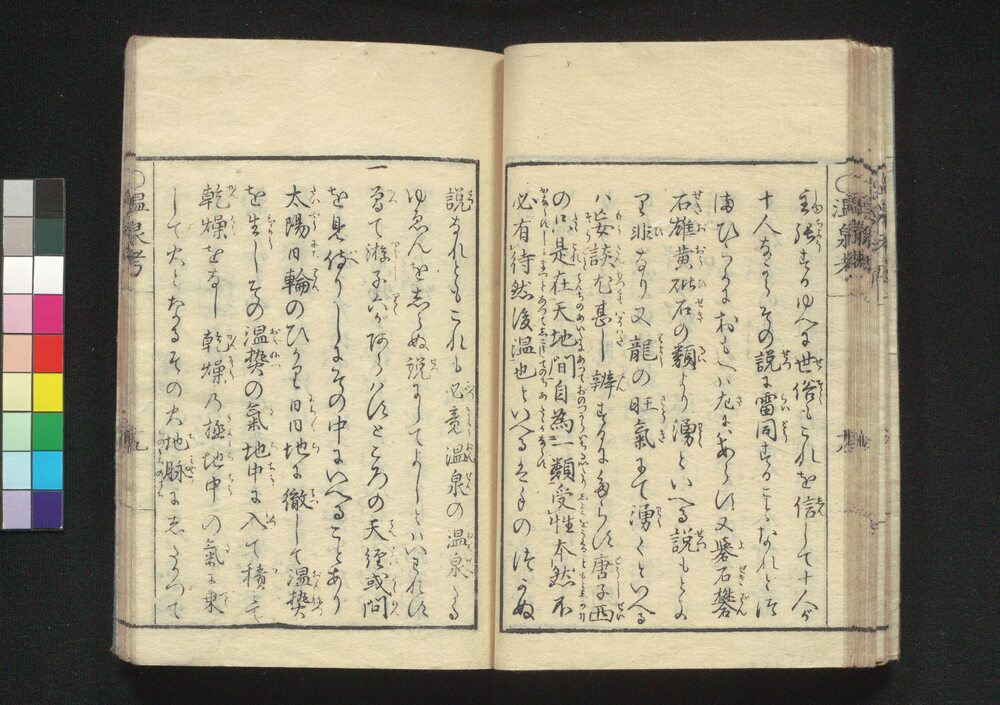 主張するゆへに世俗もこれを信して十人が
十人ながらその説に雷同することなれと
おもへハ又礜石礬
石雄黄砒石の類より湧といへる説もとより
非なり又龍の旺氣にて湧くといへる
ハ妄談尤甚し辨するにたらす唐子西
の只是在天地間自為一類受性本然不
必有待然後温也といへる
説なれともこれも必竟温泉の温泉たる
ゆゑんをしらぬ説にしてよしとハいはれす
一 曽て游子六があらハすところの天經或問
を見侍りしにその中にいへることあり
太陽日輪のひかり日日地に徹して温熱
を生しその温熱の氣地中に入て積て
乾燥をなし乾燥の極地中の氣に乗
して火となるその火地脉にしたかつて
〇温泉考
九
〇温泉考